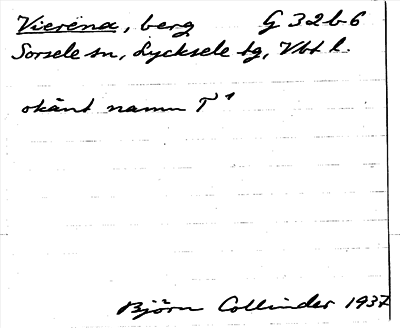 Vierena, berg G 32 b-6
Sorsele sn, Lycksele tg, Vbt l.
okänt namn T¹
Björn Collinder 1937